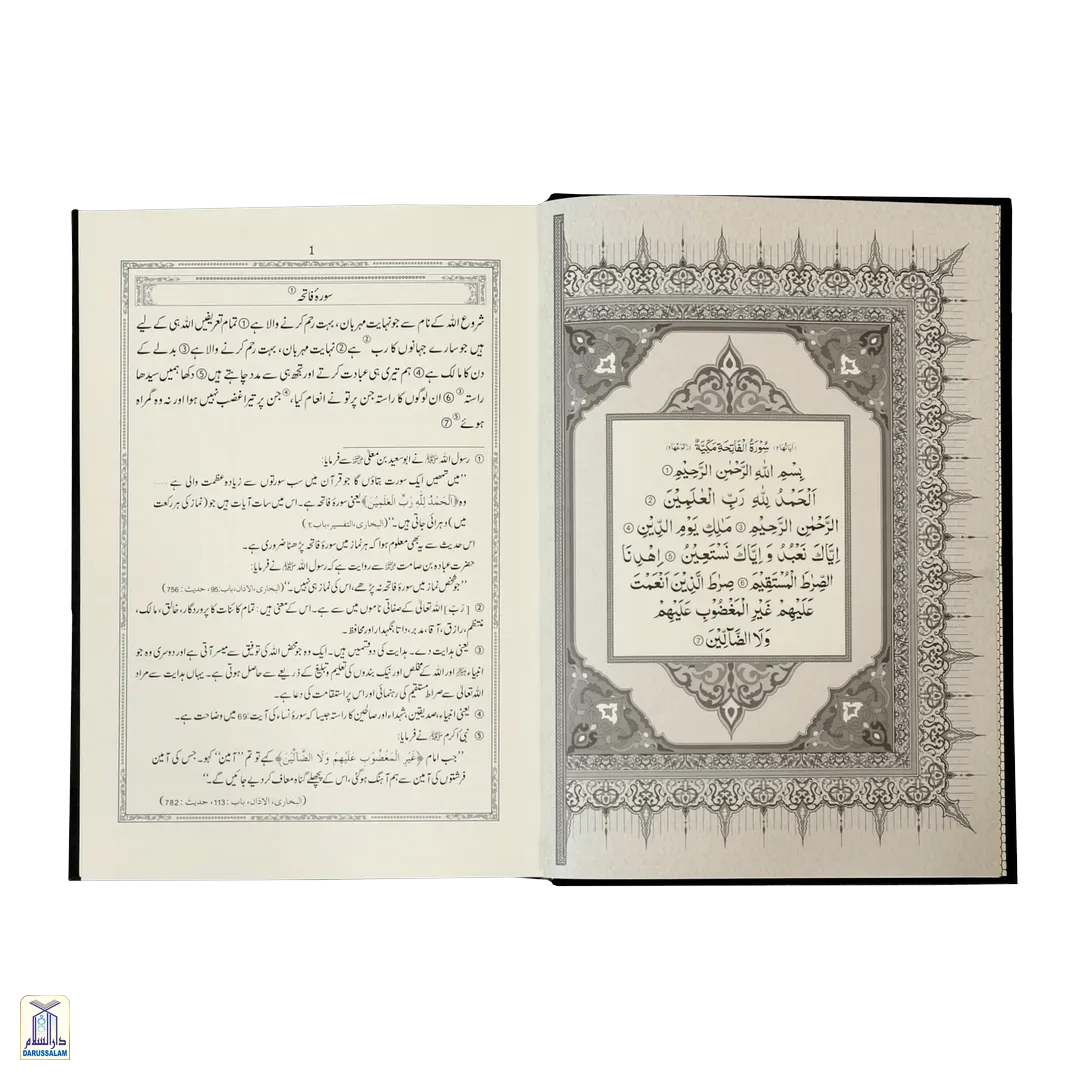 سُوْرَةُ الْفَاتِحَةِ مَكِّيَّةٌ
بِسْمِ اللّٰهِ الرَّحْمٰنِ الرَّحِيْمِ ①
اَلْحَمْدُ لِلّٰهِ رَبِّ الْعٰلَمِيْنَ ②
الرَّحْمٰنِ الرَّحِيْمِ ③ مٰلِكِ يَوْمِ الدِّيْنِ ④
اِيَّاكَ نَعْبُدُ وَ اِيَّاكَ نَسْتَعِيْنُ ⑤ اِهْدِنَا
الصِّرٰطَ الْمُسْتَقِيْمَ ⑥ صِرٰطَ الَّذِيْنَ اَنْعَمْتَ
عَلَيْهِمْ غَيْرِ الْمَغْضُوْبِ عَلَيْهِمْ
وَلَا الضَّآلِّيْنَ ⑦
1
سورۂ فاتحہ ①
شروع اللہ کے نام سے جو نہایت مہربان، بہت رحم کرنے والا ہے ① تمام تعریفیں اللہ ہی کے لیے
ہیں جو سارے جہانوں کا رب ② ہے ② نہایت مہربان، بہت رحم کرنے والا ہے ③ بدلے کے
دن کا مالک ہے ④ ہم تیری ہی عبادت کرتے اور تجھ ہی سے مدد چاہتے ہیں ⑤ دکھا ہمیں سیدھا
راستہ ③ ⑥ ان لوگوں کا راستہ جن پر تو نے انعام کیا، ④ جن پر تیرا غضب نہیں ہوا اور نہ وہ گمراہ
ہوئے ⑤ ⑦
① رسول اللہ ﷺ نے ابوسعید بن معلیٰ سے فرمایا:
’’میں تمھیں ایک سورت بتاؤں گا جو قرآن میں سب سورتوں سے زیادہ عظمت والی ہے ......
وہ ﴿اَلْحَمْدُ لِلّٰهِ رَبِّ الْعٰلَمِيْنَ﴾ یعنی سورۂ فاتحہ ہے۔ اس میں سات آیات ہیں جو (نماز کی ہر رکعت
میں) دہرائی جاتی ہیں۔‘‘ (البخاری، التفسیر، باب:1)
اس حدیث سے یہ بھی معلوم ہوا کہ ہر نماز میں سورۂ فاتحہ پڑھنا ضروری ہے۔
حضرت عبادہ بن صامت سے روایت ہے کہ رسول اللہ ﷺ نے فرمایا:
’’جو شخص نماز میں سورۂ فاتحہ نہ پڑھے، اس کی نماز ہی نہیں۔‘‘ (البخاری، الاذان، باب:95، حدیث: 756)
② [رَبّ] اللہ تعالیٰ کے صفاتی ناموں میں سے ہے۔ اس کے معنی ہیں: تمام کائنات کا پروردگار، خالق، مالک،
منتظم، رازق، آقا، مدبر، داتا، نگہدار اور محافظ۔
③ یعنی ہدایت دے۔ ہدایت کی دو قسمیں ہیں۔ ایک وہ جو محض اللہ کی توفیق سے میسر آتی ہے اور دوسری وہ جو
انبیاء اور اللہ کے مخلص اور نیک بندوں کی تعلیم و تبلیغ کے ذریعے سے حاصل ہوتی ہے۔ یہاں ہدایت سے مراد
اللہ تعالیٰ سے صراط مستقیم کی رہنمائی اور اس پر استقامت کی دعا ہے۔
④ یعنی انبیاء، صدیقین، شہداء اور صالحین کا راستہ جیسا کہ سورۂ نساء کی آیت: 69 میں وضاحت ہے۔
⑤ نبی اکرم ﷺ نے فرمایا:
’’جب امام ﴿غَيْرِ الْمَغْضُوْبِ عَلَيْهِمْ وَلَا الضَّآلِّيْنَ﴾ کہے تو تم ’’آمین‘‘ کہو۔ جس کی آمین
فرشتوں کی آمین سے ہم آہنگ ہوگئی، اس کے پچھلے گناہ معاف کر دیے جائیں گے۔‘‘
(البخاری، الاذان، باب: 113، حدیث: 782)
دارالسلام
DARUSSALAM